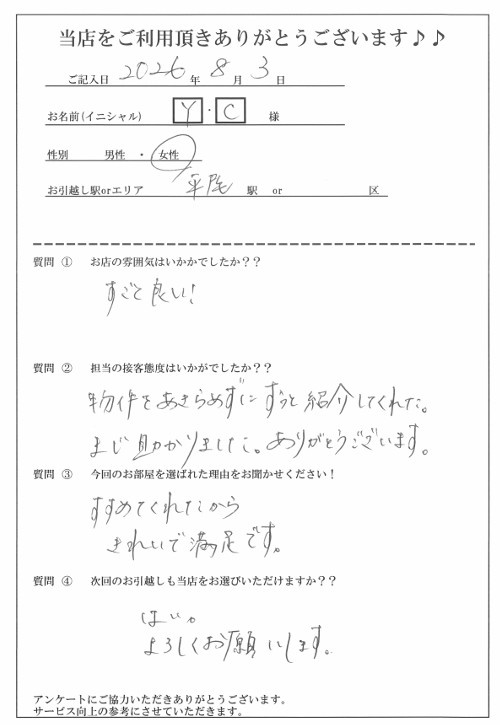 当店をご利用頂きありがとうございます♪♪
ご記入日 2026 年 8 月 3 日
お名前(イニシャル) Y・C 様
性別 男性 ・ 女性
お引越し駅orエリア 平院 駅 or 区
質問 ① お店の雰囲気はいかかでしたか??
すごく良い!
質問 ② 担当の接客態度はいかがでしたか??
物件をあきらめずにずっと紹介してくれた。
まじ助かりました。ありがとうございます。
質問 ③ 今回のお部屋を選ばれた理由をお聞かせください!
すすめてくれたから
きれいで満足です。
質問 ④ 次回のお引越しも当店をお選びいただけますか??
はい。
よろしくお願いします。
アンケートにご協力いただきありがとうございます。
サービス向上の参考にさせていただきます。